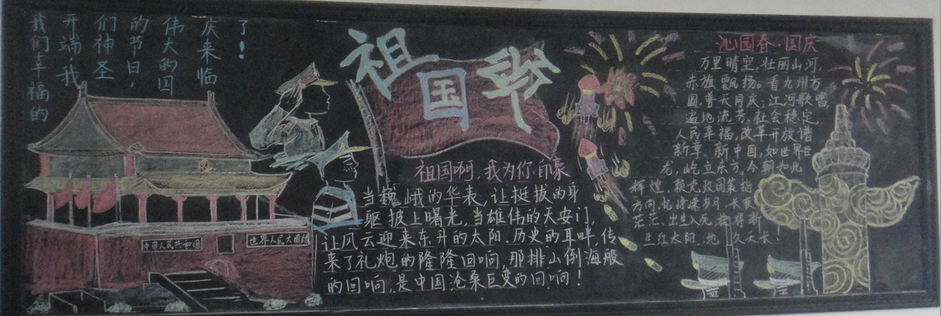 我们幸福的
开端,我
们神圣
的节日,
伟大的国
庆来临
了!
中国人民共和国
世界人民大团结
祖国颂
祖国啊,我为你自豪
当巍峨的华表,让挺拔的身
躯披上曙光,当雄伟的天安门,
让风云迎来东升的太阳,历史的耳畔,传
来了礼炮的隆隆回响,那排山倒海般
的回响,是中国沧桑巨变的回响!
沁园春·国庆
万里晴空,壮丽山河,
赤旗飘扬。看九州方
圆,普天同庆;江河歌唱
遍地流芳。社会稳定
人民幸福,改革开放谱
新章。新中国,如世界巨
龙,屹立东方。今朝
辉煌,
方向,忆往来岁月,长夜
茫茫,出生入死,
红太阳,地久天长!